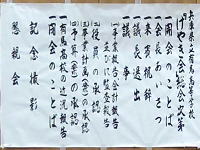 兵庫県立有馬高等学校
けやき会総会次第
一開会のことば
一会長あいさつ
一来賓祝辞
一議長選出
一議事
㈠事業報告会計報告
並びに監査報告
㈡役員の承認
㈢事業計画(案)の承認
㈣予算(案)の承認
一有馬高校の近況報告
一閉会のことば
記念撮影
懇親会